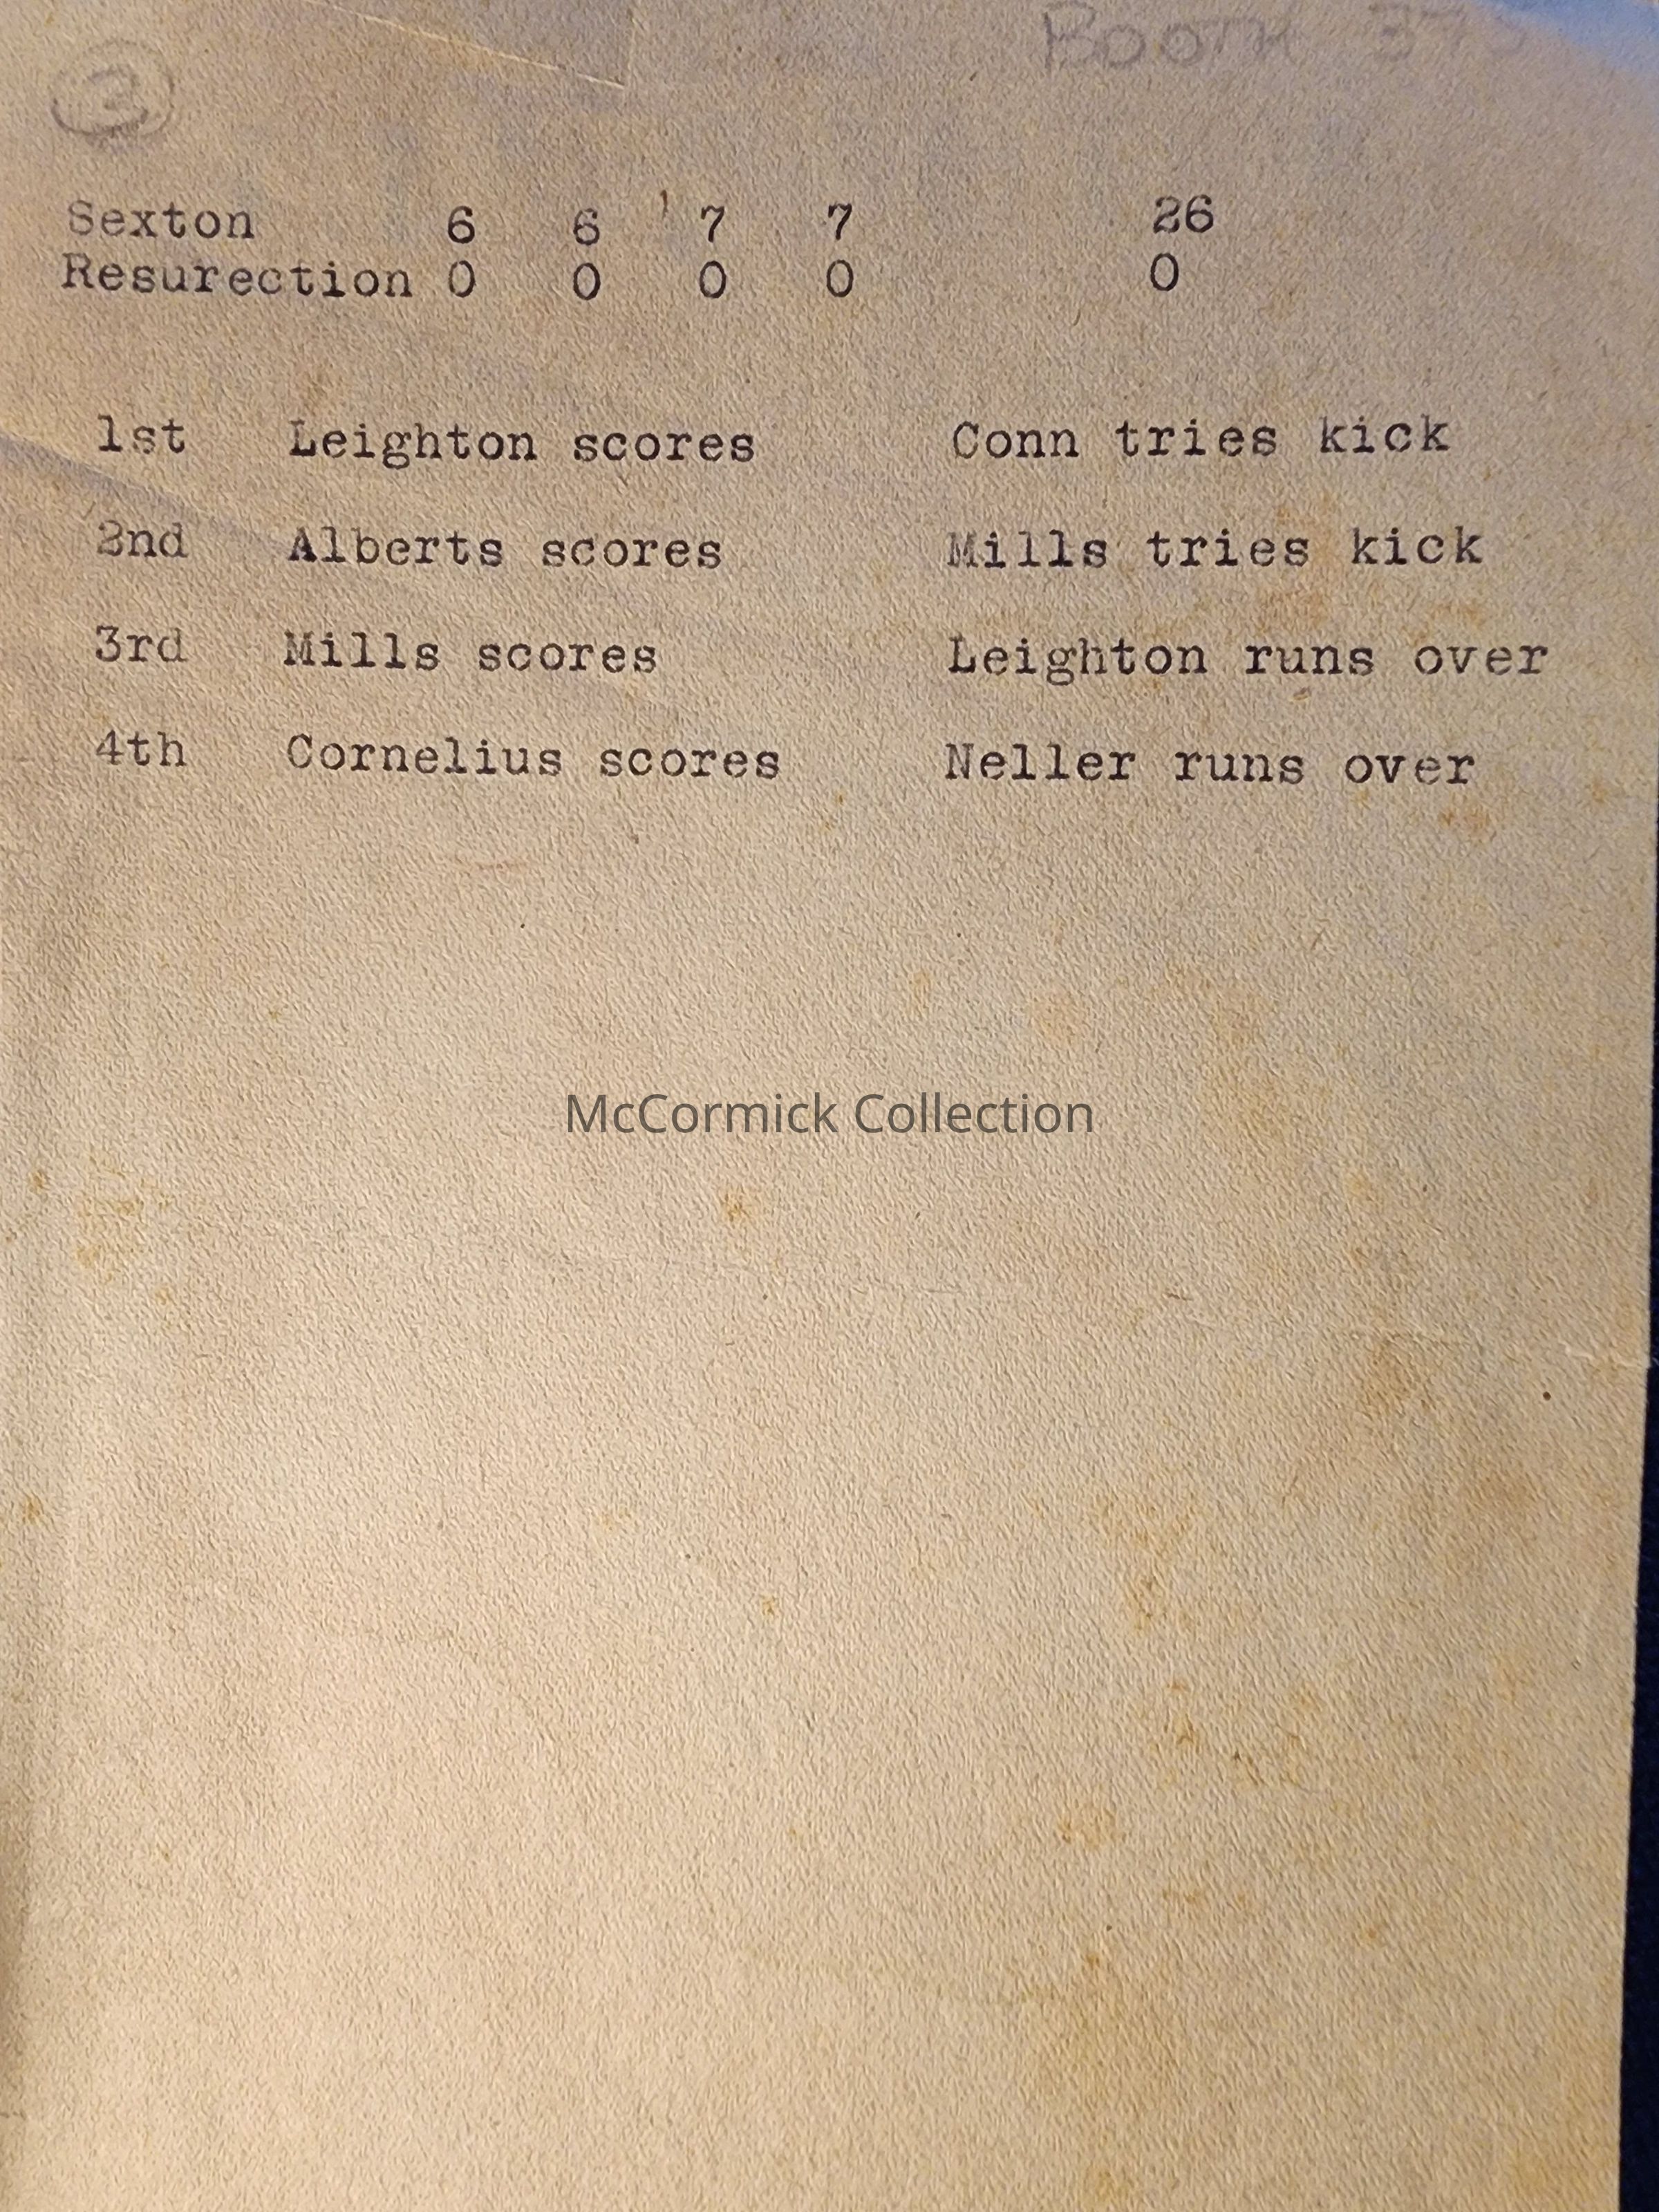 Booth 375
3
Sexton 6 6 7 7 26
Resurection 0 0 0 0 0
1st Leighton scores Conn tries kick
2nd Alberts scores Mills tries kick
3rd Mills scores Leighton runs over
4th Cornelius scores Neller runs over
McCormick Collection